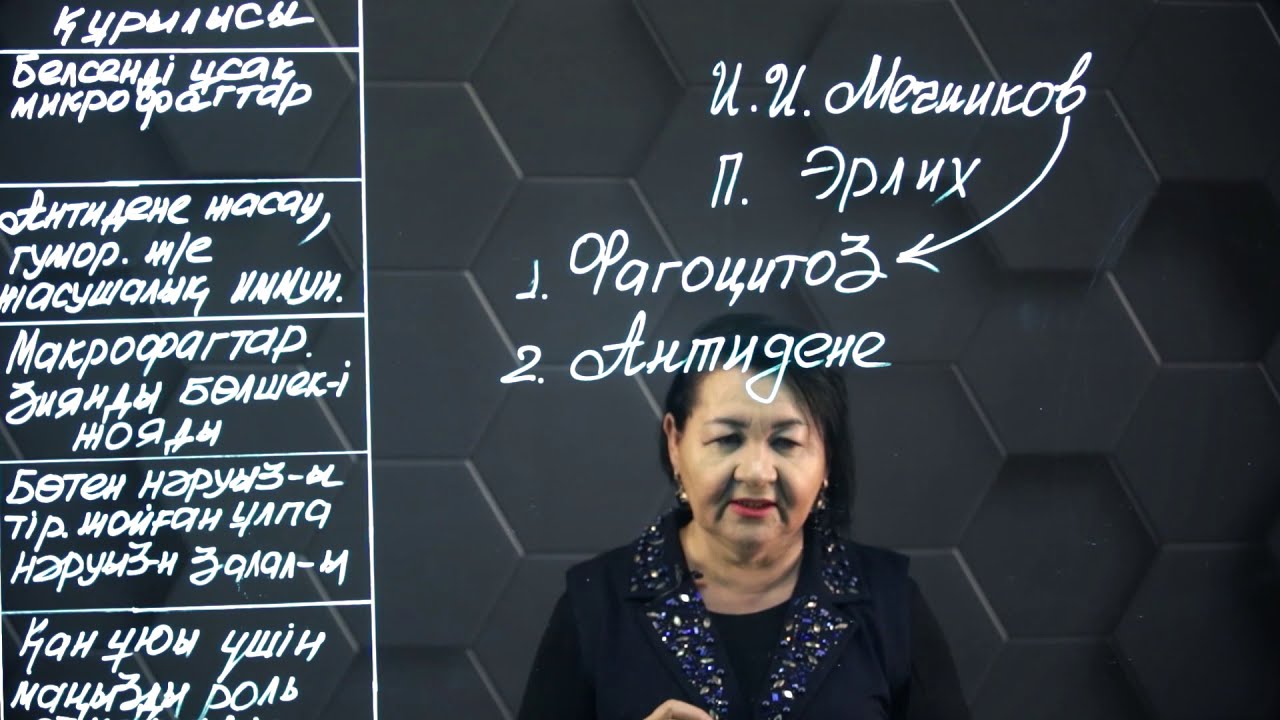 құрылысы
Белсенді ұсақ
микрофагтар
Антидене жасау,
гумор. ж/е
жасушалық иммун.
Макрофагтар.
Зиянды бөлшек-і
жояды
Бөтен нәруыз-ы
тір. жойған ұлпа
нәруыз-н залал-ы
Қан ұюы үшін
маңызды роль
И. И. Мечников
П. Эрлих
1. Фагоцитоз
2. Антидене